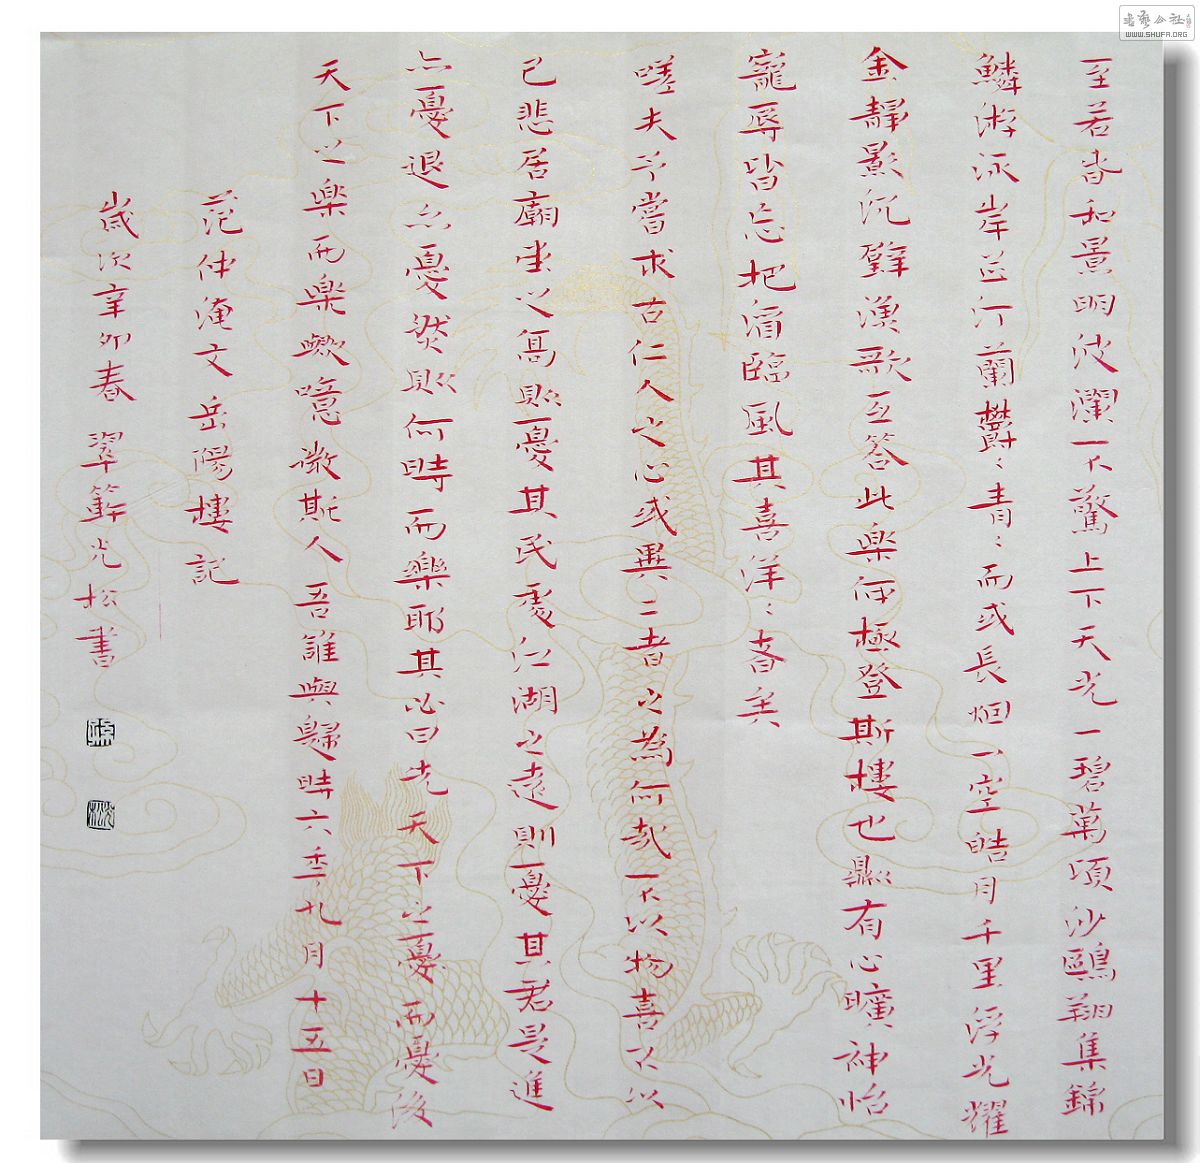 至若春和景明波瀾不驚上下天光一碧萬頃沙鷗翔集錦
鱗游泳岸芷汀蘭鬱〻青〻而或長烟一空皓月千里浮光耀
金靜影沉璧漁歌互答此樂何極登斯樓也則有心曠神怡
寵辱皆忘把酒臨風其喜洋〻者矣
嗟夫予嘗求古仁人之心或異二者之為何哉不以物喜不以
己悲居廟堂之高則憂其民處江湖之遠則憂其君是進
亦憂退亦憂然則何時而樂耶其必曰先天下之憂而憂後
天下之樂而樂歟噫微斯人吾誰與歸時六年九月十五日
范仲淹文岳陽樓記
歲次辛卯春 翠光松書
書藝公社
WWW.SHUFA.ORG